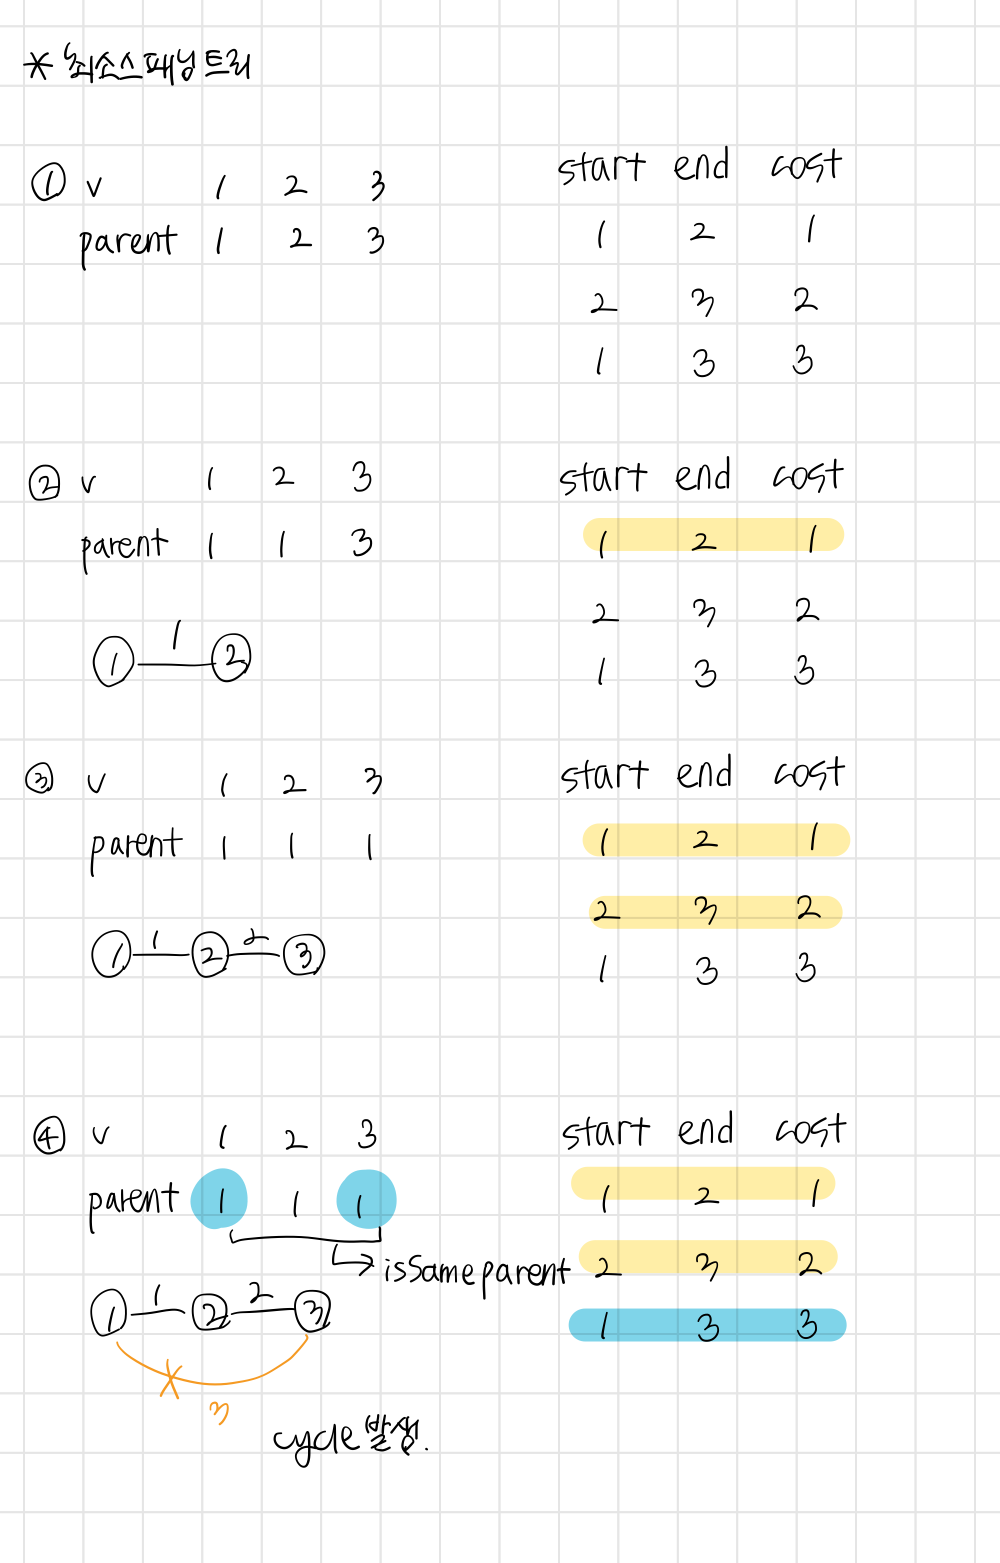 * 최소스패닝트리
① v 1 2 3
parent 1 2 3
start end cost
1 2 1
2 3 2
1 3 3
② v 1 2 3
parent 1 1 3
1
1 2
start end cost
1 2 1
2 3 2
1 3 3
③ v 1 2 3
parent 1 1 1
1 2
1 2 3
start end cost
1 2 1
2 3 2
1 3 3
④ v 1 2 3
parent 1 1 1
isSameparent
1 2
1 2 3
3
cycle 발생.
start end cost
1 2 1
2 3 2
1 3 3